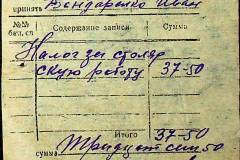 принять Бондаренко Иван
№№ бал. сч Содержание записи Сумма
Налог за столяр
скую работу 37-50
Итого 37-50
сумма Тридцат сем 50